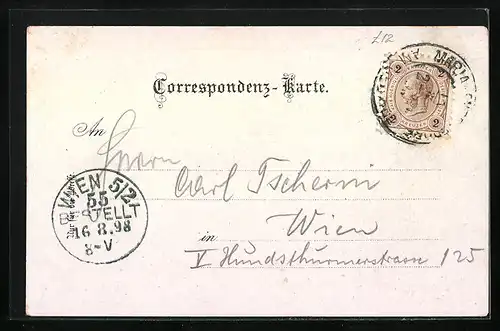 £12
2 2
MARIA
Correspondenz-Karte.
An
Herrn
Carl Tscherni
WIEN 5/2
55
BESTELLT
16.8.98
8-V
Wien
in
V Hundsthurmerstrasse 125